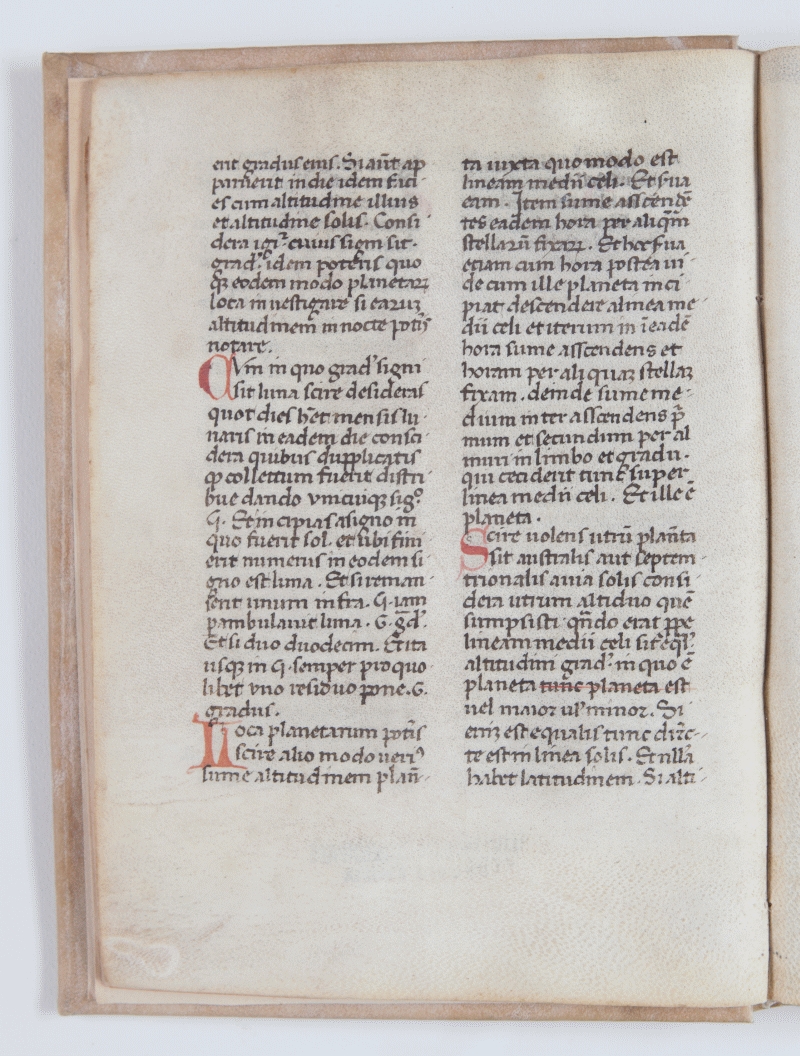 erit gradus eius. Si aūt ap
paruerit in die idem faci
es cum altitudine illius
et altitudine solis. Consi
dera igr̄ cuius sigm sit.
grad᷒. idem poteris quo
qꝫ eodem modo planetarꝝ
loca investigare si earuꝫ
altitudinem in nocte potis̄
notare.
Cvm in quo grad᷒ signi
sit luna scire desideras
quot dies h̄et mensis lu
naris in eadem die consi
dera quibus dupplicatis
qꝫ collectum fuerit distri
bue dando vnicuiqꝫ sig᷒
.G. Et incipias a signo in
quo fuerit sol. et ubi fini
erit numerus in eodem si
gno est luna. Et si reman
serit unum infra .G. iam
pambulauit luna .G. gd᷒.
Et si duo duodecim. Et ita
usqꝫ in .G. semper pro quo
libet vno residuo pone .G.
gradus.
Loca planetarum potis̄
scire alio modo veri᷒
sume altitudinem plan̄
ta iuxta quo modo est
lineam medii celi. Et serua
eam. Item sume asscende
tes eadem hora per aliqm̄
stellarū fixarꝝ. Et hoc fua
etiam cum hora postea ui
de cum ille planeta inci
piat descendere a linea me
dii celi et iterum in ī eadē
hora sume asscendens et
horam per aliquaꝫ stellaꝫ
fixam. deinde sume me
dium inter asscendens p̄
mum et secundum per al
muri in limbo et gradu.
qui ceciderit tunc super
linea medii celi. Et ille ē
planeta.
Scire uolens utrū planēta
sit australis aut septem
trionalis a uia solis consi
dera utrum altiduo quē
sumpsisti qn̄do erat ꝓpe
lineam medii celi sit eql᷒
altitudini grad᷒ in quo ē
planeta tunc planeta est
uel maior ul᷒ minor. Si
eniꝫ est equalis tunc direc̄
te est in linea solis. Et nullā
habet latitudinem. Si alti